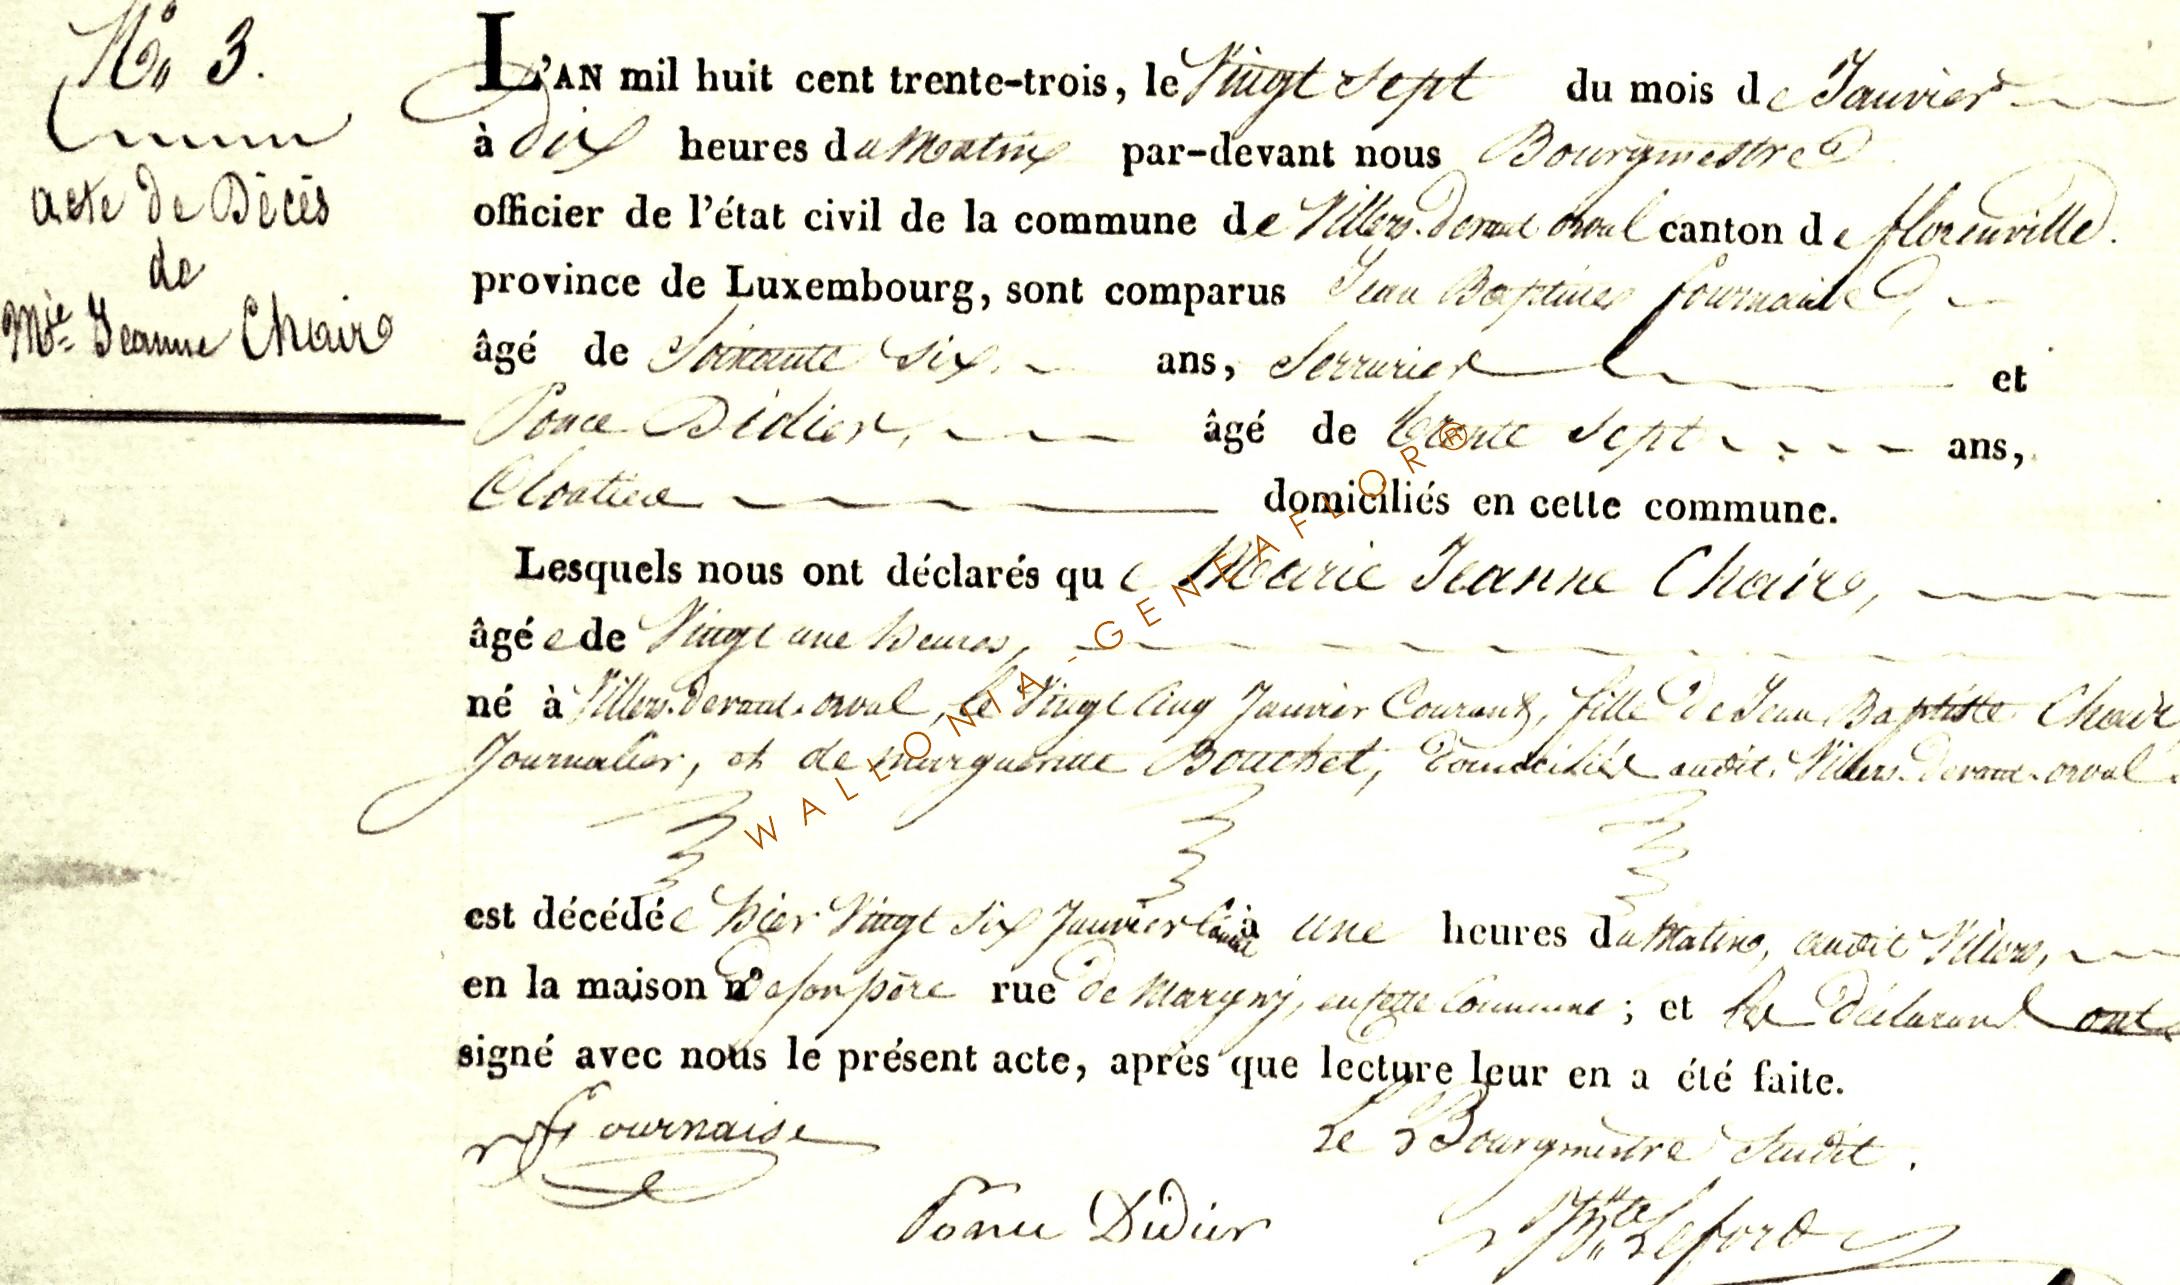 N° 3.
acte de Décès
de
Mie Jeanne Chair
L'AN mil huit cent trente-trois, le Vingt sept du mois de Janvier
à dix heures du Matin par-devant nous Bourgmestre
officier de l'état civil de la commune de Villers-devant-orval canton de florenville.
province de Luxembourg, sont comparus Jean Baptiste fournaise,
âgé de Soixante six ans, Serrurier et
Ponce Didier, âgé de trente sept ans,
Cloutier domiciliés en cette commune.
Lesquels nous ont déclarés que Marie Jeanne Chair,
âgée de Vingt une heures,
né à Villers-devant-orval, le Vingt Cinq Janvier Courant, fille de Jean Baptiste Chair
Journalier, et de marguerite Bouchet, domiciliés audit Villers-devant-orval
est décédée hier Vingt six Janvier Courant à une heures du Matin, audit Villers,
en la maison de son père rue de Margny, en cette Commune ; et les déclarans ont
signé avec nous le présent acte, après que lecture leur en a été faite.
Fournaise
Le Bourgmestre Susdit.
Ponce Didier
Leford
WALLONIA-GENEAFLOR®